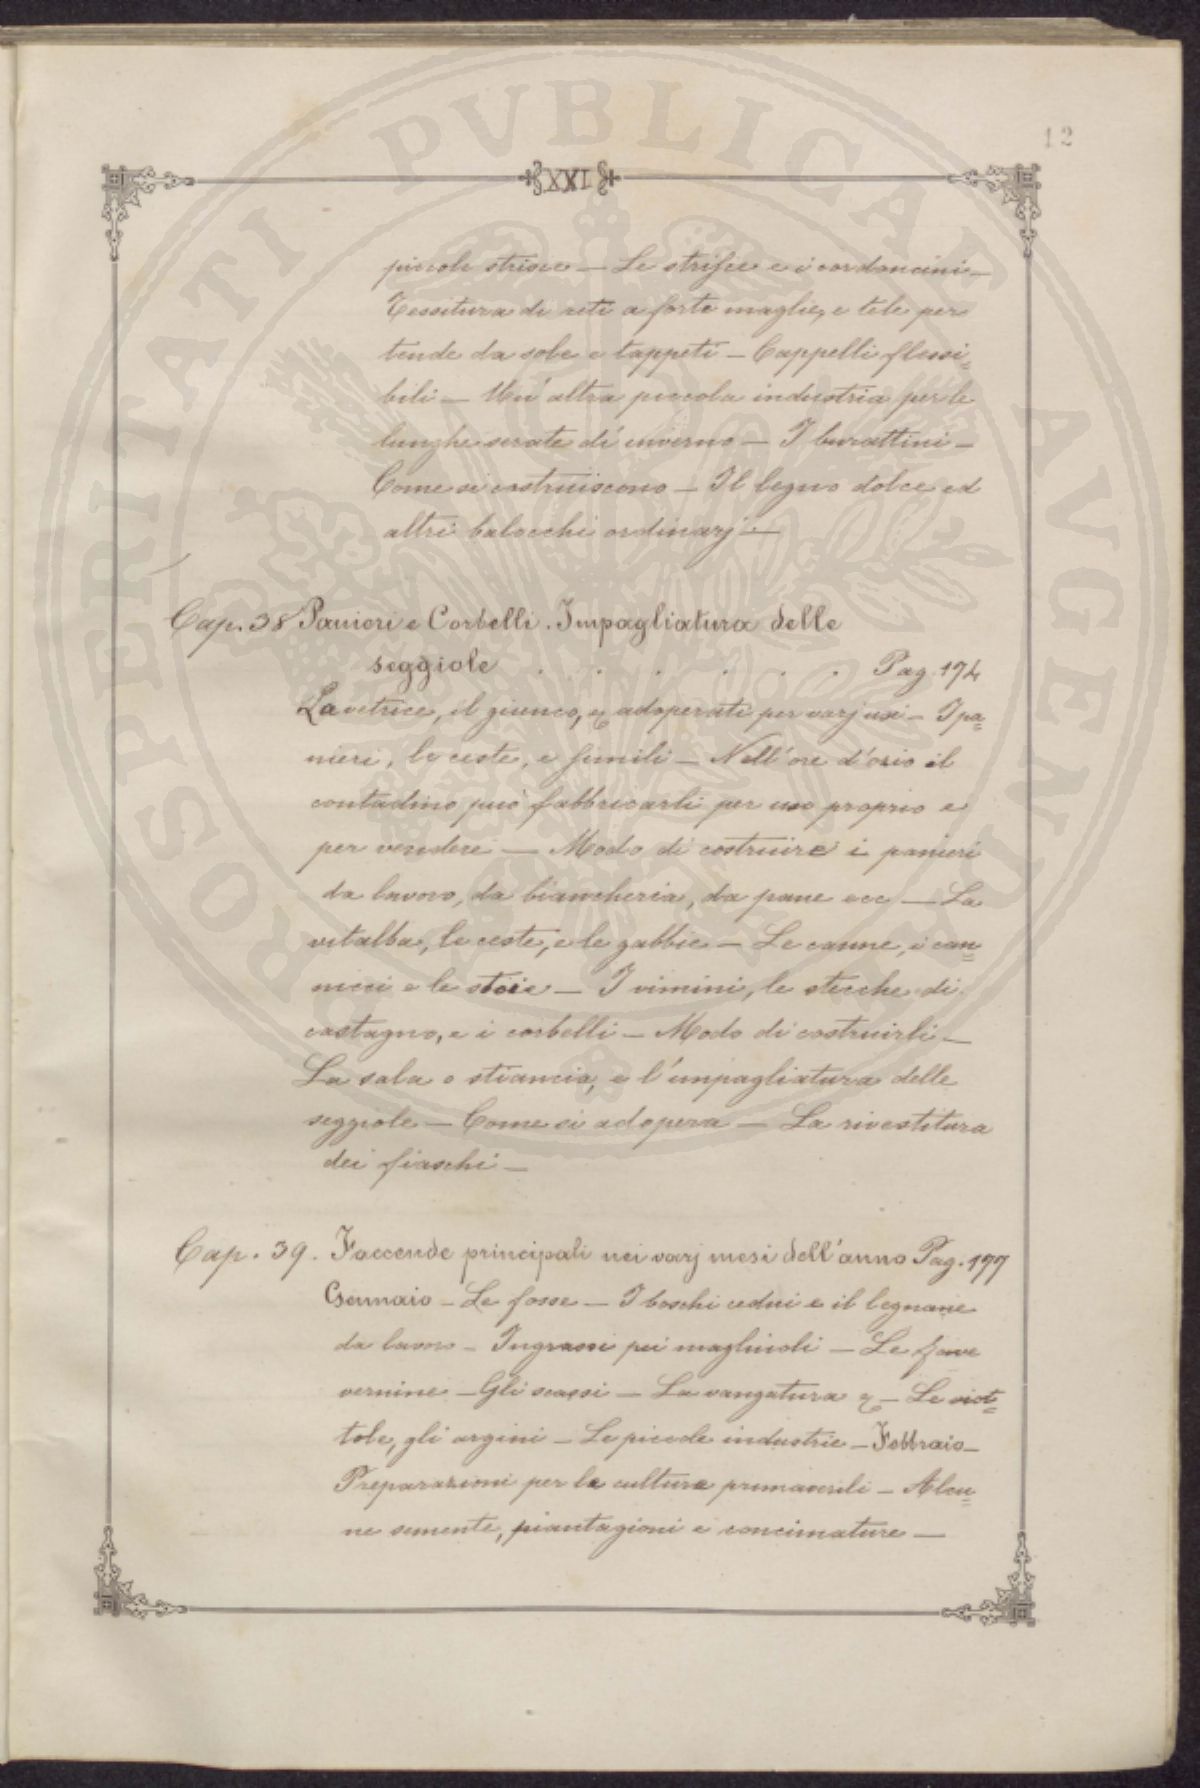 12
XXI
piccole strisce — Le strisce e i cordoncini —
Tessitura di reti a forti maglie, e tele per
tende da sole e tappeti — Cappelli flessi=
bili — Un' altra piccola industria per le
lunghe serate di inverno — I burattini —
Come si costruiscono — Il legno dolce ed
altri balocchi ordinarj —
Cap. 38 Panieri e Corbelli. Impagliatura delle
seggiole . . . . . . Pag. 174
La vetrice, il giunco, & adoperati per varj usi — I pa=
nieri, le ceste, e simili — Nell'ore d'ozio il
contadino può fabbricarli per uso proprio e
per vendere — Modo di costruire i panieri
da lavoro, da biancheria, da pane ecc — La
vitalba, le ceste, e le gabbie — Le canne, i can=
nicci e le stoie — I vimini, le stecche di
castagno, e i corbelli — Modo di costruirli —
La sala o stiancia, e l'impagliatura delle
seggiole — Come si adopera — La rivestitura
dei fiaschi —
Cap. 39. Faccende principali nei varj mesi dell'anno Pag. 177
Gennaio — Le fosse — I boschi cedui e il legname
da lavoro — Ingrassi pei magliuoli — Le fave
vernine — Gli scassi — La vangatura & — Le viot=
tole, gli argini — Le piccole industrie — Febbraio —
Preparazioni per le culture primaverili — Alcu=
ne semente, piantagioni e concimature —
PROSPERITATI PVBLICAE AVGENDAE